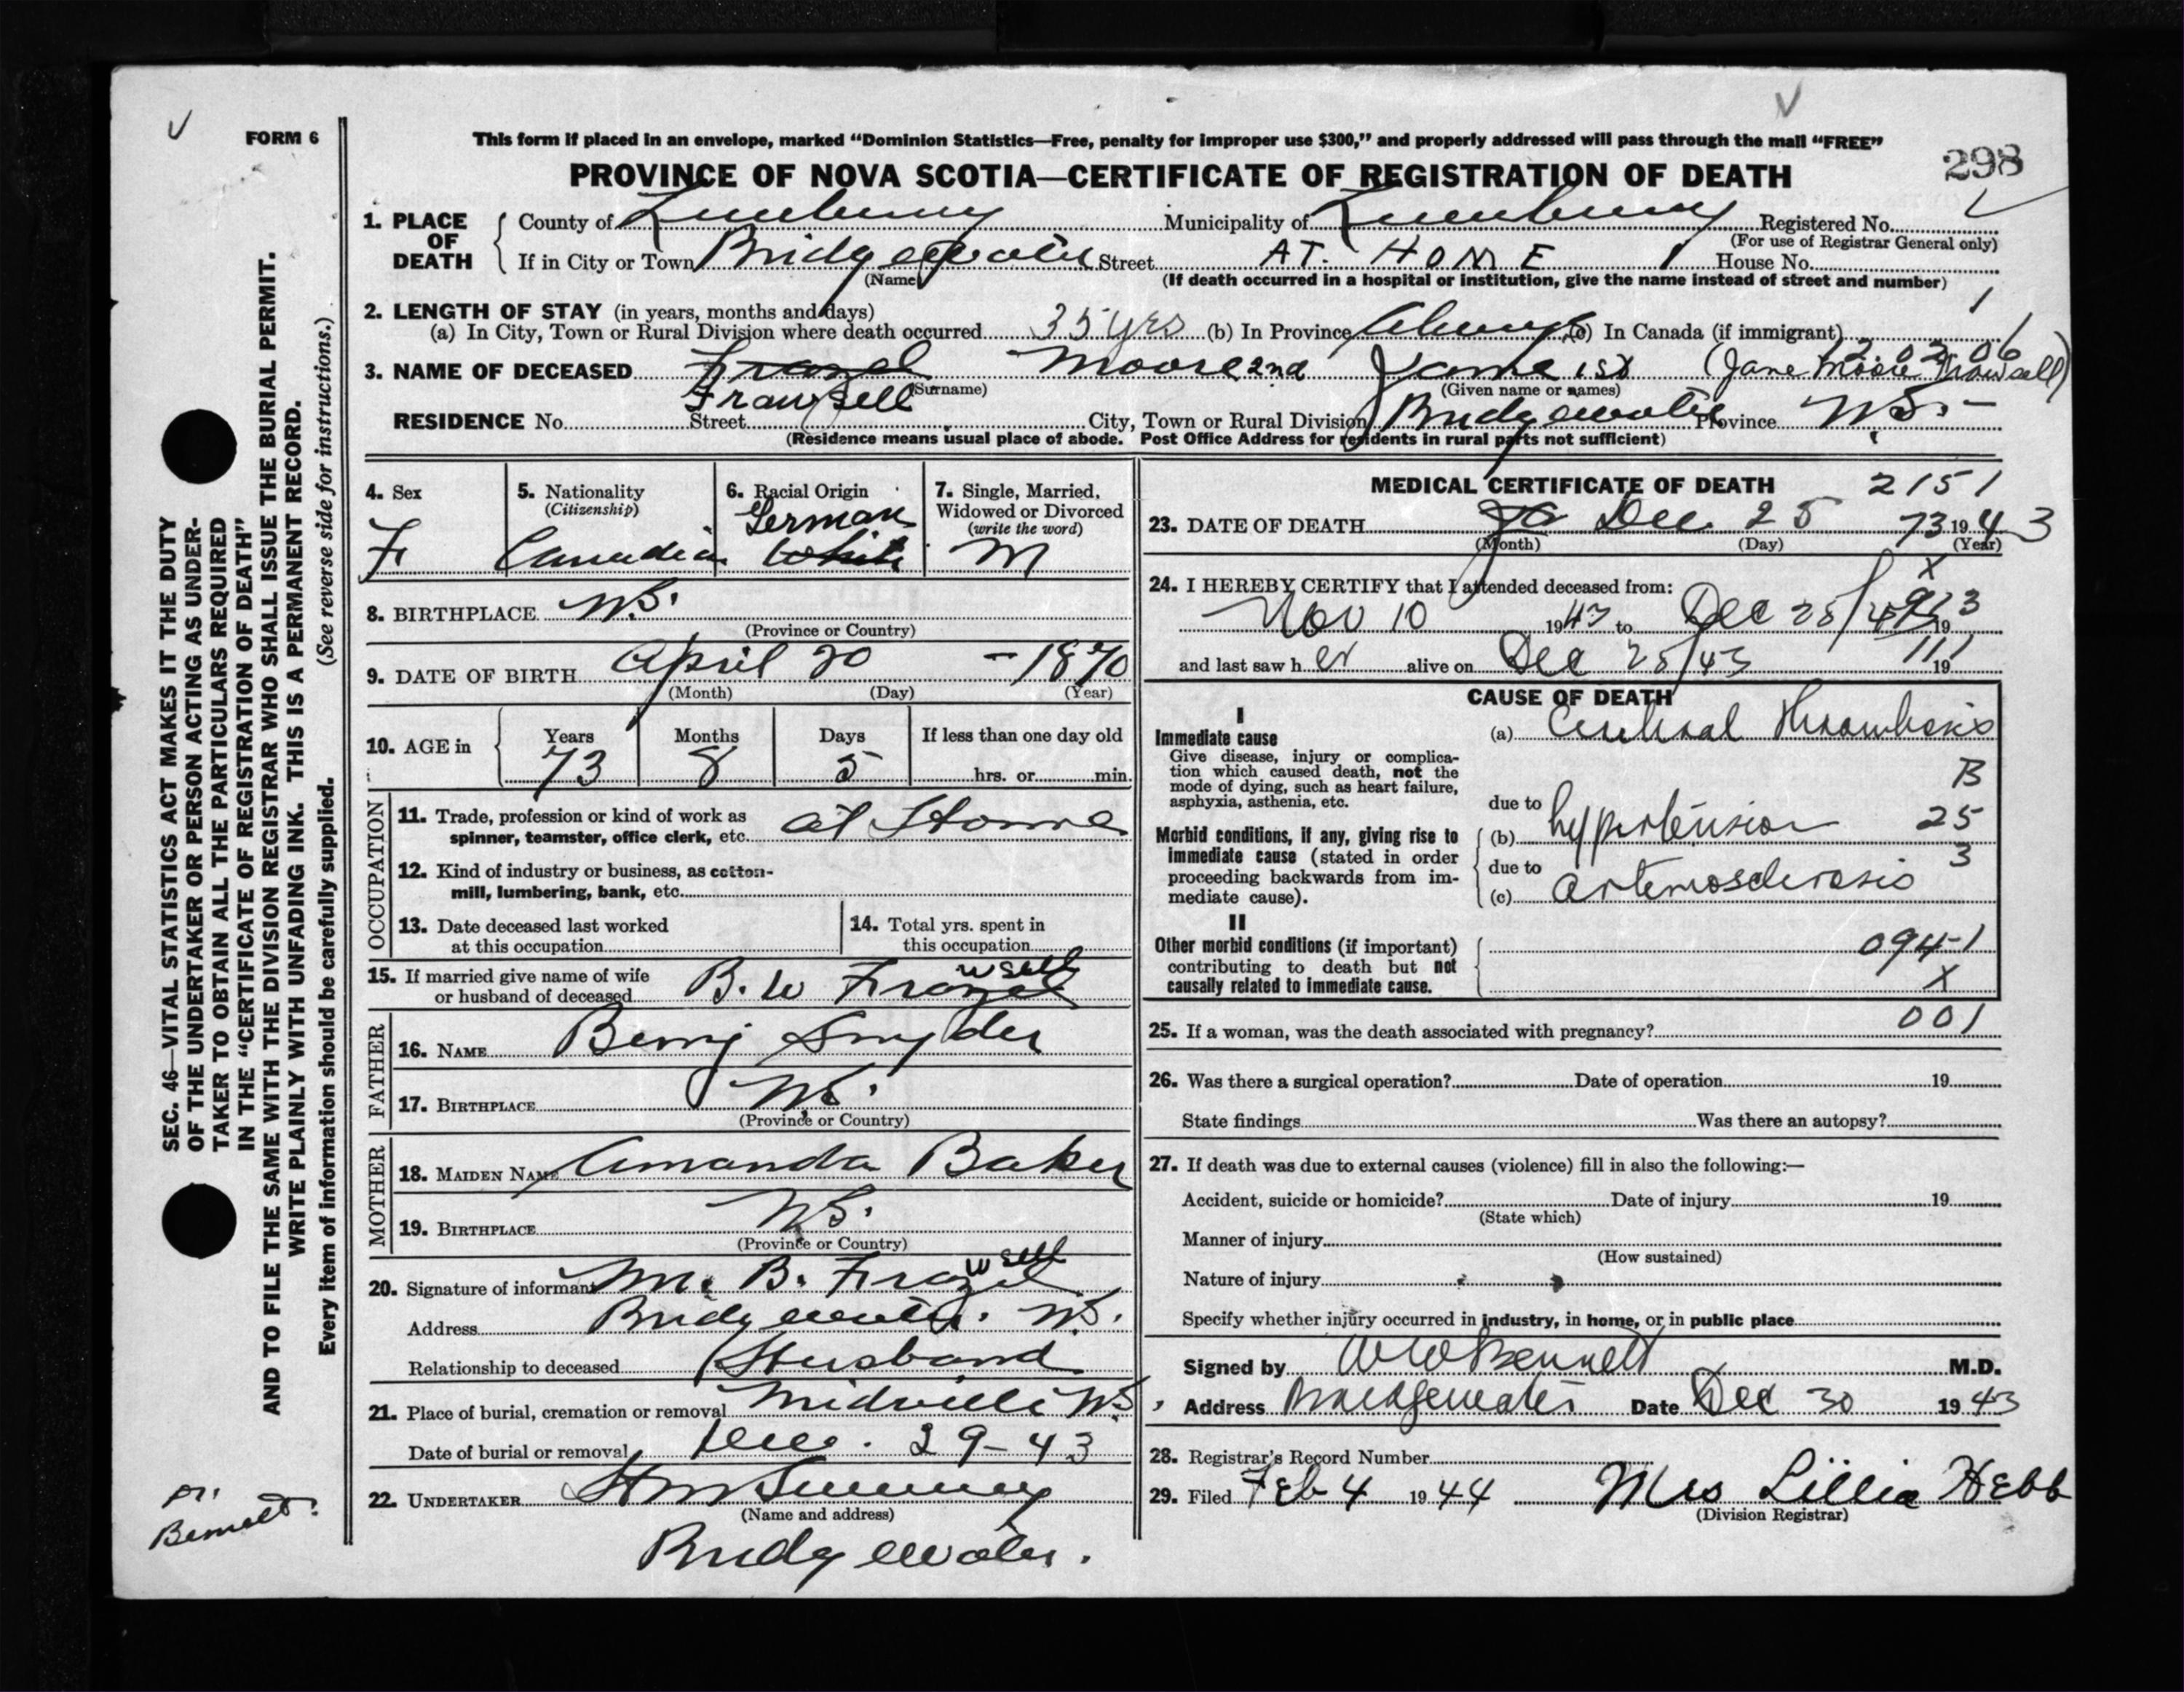 FORM 6
This form if placed in an envelope, marked “Dominion Statistics—Free, penalty for improper use $300,” and properly addressed will pass through the mail “FREE”
PROVINCE OF NOVA SCOTIA—CERTIFICATE OF REGISTRATION OF DEATH
298
1. PLACE OF DEATH
County of Lunenburg Municipality of Lunenburg Registered No.
(For use of Registrar General only)
If in City or Town Bridgewater Street AT. HOME House No.
(Name)
(If death occurred in a hospital or institution, give the name instead of street and number)
2. LENGTH OF STAY (in years, months and days)
(a) In City, Town or Rural Division where death occurred 35 yrs (b) In Province Always (c) In Canada (if immigrant)
12 02 06
3. NAME OF DECEASED Frazel Moore 2nd Jane 1st (Jane Moore Frawsell)
Frawsell (Surname) (Given name or names)
RESIDENCE No. Street City, Town or Rural Division Bridgewater Province N.S.
(Residence means usual place of abode. Post Office Address for residents in rural parts not sufficient)
4. Sex
F
5. Nationality
(Citizenship)
Canadian
6. Racial Origin
German
White
7. Single, Married,
Widowed or Divorced
(write the word)
M
8. BIRTHPLACE N.S.
(Province or Country)
9. DATE OF BIRTH April 20 - 1870
(Month) (Day) (Year)
10. AGE in
Years Months Days If less than one day old
73 8 5 hrs. or min.
OCCUPATION
11. Trade, profession or kind of work as
spinner, teamster, office clerk, etc. at Home
12. Kind of industry or business, as cotton-
mill, lumbering, bank, etc.
13. Date deceased last worked
at this occupation
14. Total yrs. spent in
this occupation
15. If married give name of wife
or husband of deceased B. W Frazel wsell
FATHER
16. NAME Benj Snyder
17. BIRTHPLACE N.S.
(Province or Country)
MOTHER
18. MAIDEN NAME Amanda Baker
19. BIRTHPLACE N.S.
(Province or Country)
20. Signature of informant M. B. Frazel wsell
Address Bridgewater. N.S.
Relationship to deceased Husband
21. Place of burial, cremation or removal Midville N.S.
Date of burial or removal Dec. 29-43
22. UNDERTAKER
(Name and address)
Bridgewater.
MEDICAL CERTIFICATE OF DEATH 2151
23. DATE OF DEATH Dec 25 73 1943
(Month) (Day) (Year)
24. I HEREBY CERTIFY that I attended deceased from:
Nov 10 1943 to Dec 25/43 19
and last saw her alive on Dec 25/43 19
111
CAUSE OF DEATH
I
Immediate cause
Give disease, injury or complica-
tion which caused death, not the
mode of dying, such as heart failure,
asphyxia, asthenia, etc.
(a) Cerebral Thrombosis
B
due to
Morbid conditions, if any, giving rise to
immediate cause (stated in order
proceeding backwards from im-
mediate cause).
(b) hypertension 25
due to 3
(c) arteriosclerosis
II
Other morbid conditions (if important)
contributing to death but not
causally related to immediate cause.
094-1
X
25. If a woman, was the death associated with pregnancy? 001
26. Was there a surgical operation? Date of operation 19
State findings Was there an autopsy?
27. If death was due to external causes (violence) fill in also the following:—
Accident, suicide or homicide? Date of injury 19
(State which)
Manner of injury
(How sustained)
Nature of injury
Specify whether injury occurred in industry, in home, or in public place
Signed by W W Bennett M.D.
Address Bridgewater Date Dec 30 1943
28. Registrar's Record Number
29. Filed Feb 4 1944 Mrs Lillia Hebb
(Division Registrar)
SEC. 46—VITAL STATISTICS ACT MAKES IT THE DUTY
OF THE UNDERTAKER OR PERSON ACTING AS UNDER-
TAKER TO OBTAIN ALL THE PARTICULARS REQUIRED
IN THE “CERTIFICATE OF REGISTRATION OF DEATH”
AND TO FILE THE SAME WITH THE DIVISION REGISTRAR WHO SHALL ISSUE THE BURIAL PERMIT.
WRITE PLAINLY WITH UNFADING INK. THIS IS A PERMANENT RECORD.
(See reverse side for instructions.)
Every item of information should be carefully supplied.
Dr.
Bennett.